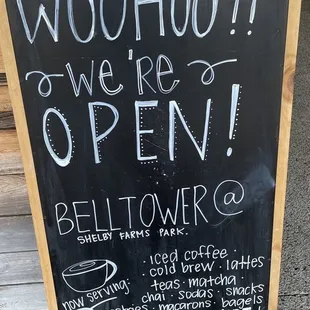 WOOHOO!!
we're
OPEN!
BELLTOWER @
SHELBY FARMS PARK.
· Iced coffee ·
cold brew · lattes
now serving: teas · matcha ·
chai · sodas · snacks
macarons · bagels